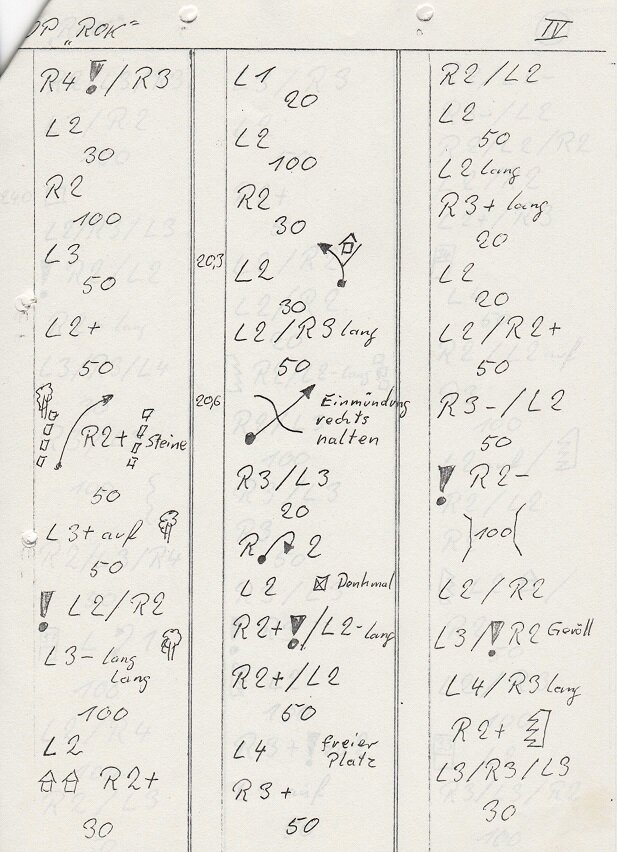 OP „ROK“
IV
R4 ! / R3
L2
30
R2
100
L3
50
L2+
50
R2+ Steine
50
L3+ auf
50
! L2/R2
L3- lang
lang
100
L2
R2+
30
L1
20
L2
100
R2
30
20,3
L2
30
L2/R3 lang
50
20,6
Einmündung
rechts
halten
R3/L3
20
R 2
L2 Denkmal
R2+ ! /L2- lang
R2+/L2
50
L4 freier
Platz
R3+
50
R2/L2
L2
50
L2 lang
R3+ lang
20
L2
20
L2/R2+
50
R3-/L2
50
! R2-
)100(
L2/R2
L3/ ! R2 Geröll
L4/R3 lang
R2+
L3/R3/L3
30